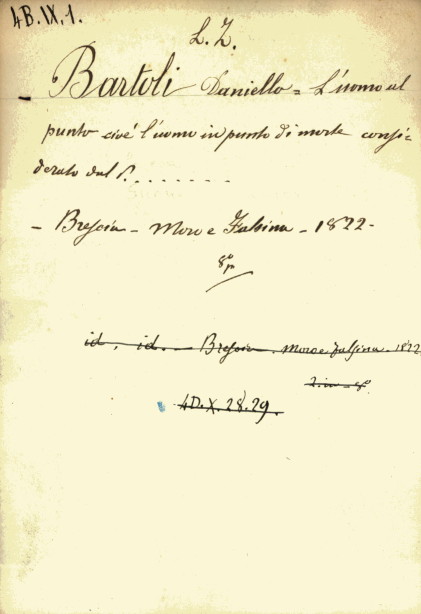 4B.IX.1.
L. Z.
Bartoli Daniello = L'uomo al
punto cioè l'uomo in punto di morte consi-
derato dal P. . . . . . . .
- Brescia - Moro e Falsina - 1822 -
8º
id, id. - Brescia - Moro e Falsina - 1822
2. in - 8º
4D.X.28.29.